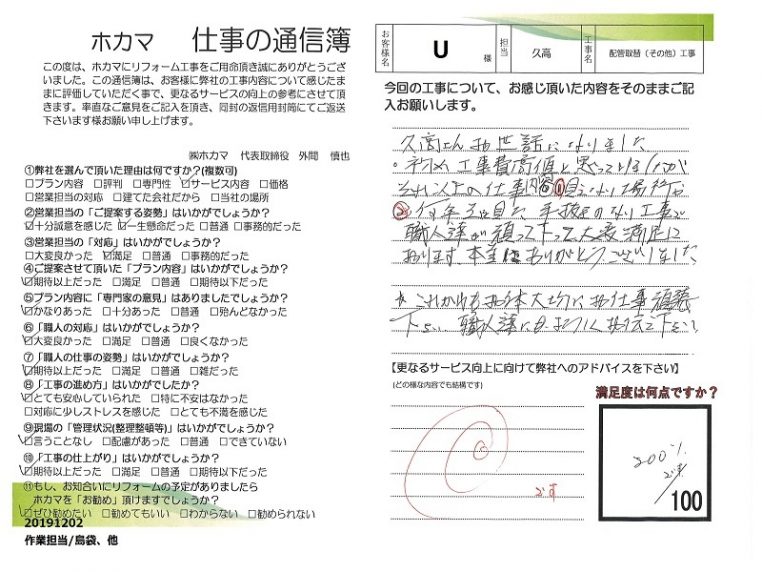 ホカマ 仕事の通信簿
この度は、ホカマにリフォーム工事をご用命頂き誠にありがとうござ
いました。この通信簿は、お客様に弊社の工事内容について感じたま
まに評価していただく事で、更なるサービスの向上の参考にさせて頂
きます。率直なご意見をご記入を頂き、同封の返信用封筒にてご返送
下さいます様お願い申し上げます。
㈱ホカマ 代表取締役 外間 慎也
①弊社を選んで頂いた理由は何ですか?(複数可)
□プラン内容 □評判 □専門性 ☑サービス内容 □価格
□営業担当の対応 □建てた会社だから □当社の場所
②営業担当の「ご提案する姿勢」はいかがでしょうか?
☑十分誠意を感じた ☑一生懸命だった □普通 □事務的だった
③営業担当の「対応」はいかがでしょうか?
□大変良かった ☑満足 □普通 □事務的だった
④ご提案させて頂いた「プラン内容」はいかがでしょうか?
☑期待以上だった □満足 □普通 □期待以下だった
⑤プラン内容に「専門家の意見」はありましたでしょうか?
☑かなりあった □十分あった □普通 □殆んどなかった
⑥「職人の対応」はいかがでしょうか?
☑大変良かった □満足 □普通 □良くなかった
⑦「職人の仕事の姿勢」はいかがでしょうか?
☑期待以上だった □満足 □普通 □雑だった
⑧「工事の進め方」はいかがでしたか?
☑とても安心していられた □特に不安はなかった
□対応に少しストレスを感じた □とても不満を感じた
⑨現場の「管理状況(整理整頓等)」はいかがでしょうか?
☑言うことなし □配慮があった □普通 □できていない
⑩「工事の仕上がり」はいかがでしょうか?
☑期待以上だった □満足 □普通 □期待以下だった
⑪もし、お知合いにリフォームの予定がありましたら
ホカマを「お勧め」頂けますでしょうか?
☑ぜひ勧めたい □勧めてもいい □わからない □勧められない
20191202
作業担当/島袋、他
お客様名 U 様 担当 久高 工事名 配管取替(その他)工事
今回の工事について、お感じ頂いた内容をそのままご記
入お願いします。
久高さんお世話になりました
初め工事費高値と思って
それ以上の仕事内容 ① 目になり場所や
② 手抜きのない工事で
職人達が頑って下って大変満足に
おります 本当にありがとうございました
これからもお体大切にお仕事頑張
下さい 職人達にも よろしくお伝え下さい
【更なるサービス向上に向けて弊社へのアドバイスを下さい】
(どの様な内容でも結構です)
です
満足度は何点ですか?
200%
です
100